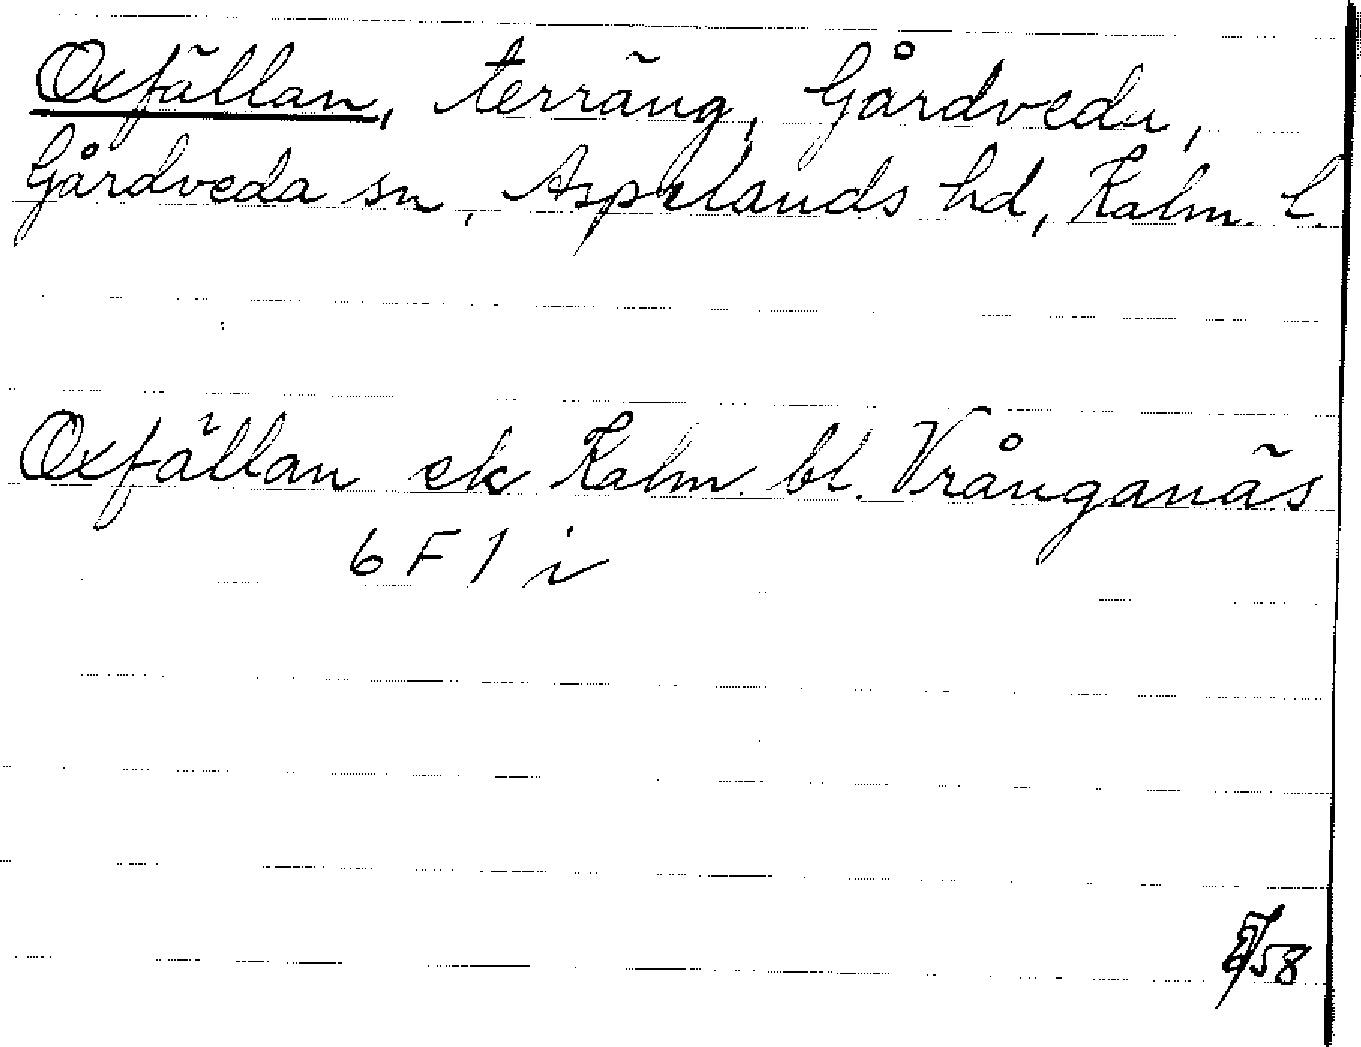 Oxfällan, terräng, Gårdveda,
Gårdveda sn, Aspelands hd, Kalm. l.
Oxfällan ek Kalm. bl. Vrånganäs
6 F 1 i
58